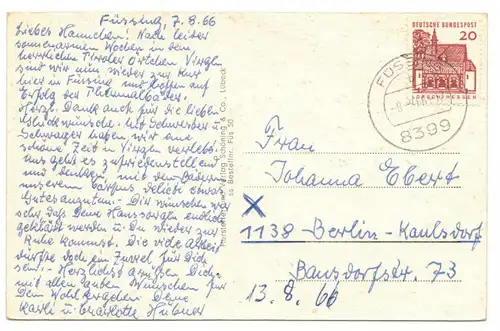 Füssing, 7.8.66
Liebes Hannchen! Nach leider
sonnenarmen Wochen in dem
herrlichen Tiroler Örtchen Virgln
sind wir nun wieder zur Kur
hier in Füssing und hoffen auf
Erfolg der Thermalbäder.
Herzl. Dank auch für die lieben
Glückwünsche. Mit Schwester u.
Schwager haben wir eine
schöne Zeit in Virgln verlebt.
Uns geht es zufriedenstellend
und denken, mit den Bädern
unserem Corpus delicti etwas
Gutes anzutun. - Dir wünschen wir
sehr, daß Deine Haussorgen endlich
geklärt werden u. Du wieder zur
Ruhe kommst. Die viele Arbeit
dürfte doch ein Zuviel für Dich
sein. - Herzlichst grüßen Dich
mit allen guten Wünschen für
Dein Wohlergehen Deine
Karli u. Charlotte Hübner
Verlag Schöning & Co., Lübeck
Bestellnr. Füs 50
DEUTSCHE BUNDESPOST
20
LORSCH/HESSEN
FÜSSING
8399
Frau
Johanna Ebert
1138 Berlin-Kaulsdorf
Bansdorfstr. 73
13.8.66